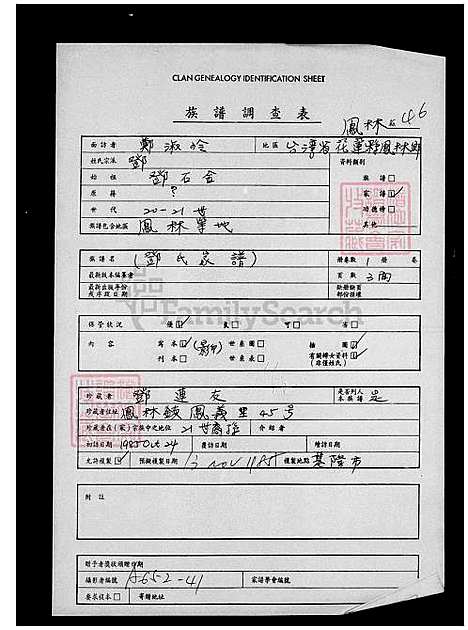 CLAN GENEALOGY IDENTIFICATION SHEET
族譜調查表
鳳林 46
面訪者 鄭淑玲 地區 台灣省花蓮縣鳳林鄉
姓氏宗派 鄧 資料類別
始祖 鄧石合 族譜□
原籍 ? 家譜☑
世代 20-21世 功德榜□
族譜包含地區 鳳林等地 其他
族譜名 (鄧氏家譜) 冊卷數 1 冊 卷
最新版本編纂者 頁數 3面
最新出版年份或序跋日期 缺冊缺頁部份捲標
FamilySearch
保管狀況 優☑ 良□ 可□ 劣□
內容 寫本☑ (影印) 世系圖□ 插圖□
刊本□ 世系表□ 有關婦女資料(非僅姓氏)☑
珍藏者 鄧蓮友 是否列入本族譜 是
珍藏者住址 鳳林鎮鳳義里45号
珍藏者在(家)宗族中之地位 21世裔孫 介紹者
初訪日期 1985 Oct 24 覆訪日期 續訪日期
允許複製☑ 預擬複製日期 13 NOV 1985 複製地點 基隆市
附註
贈予者獎狀頒贈日期
攝影者編號 A65-2-41 家譜學會編號
要求複本□ 寄贈地址